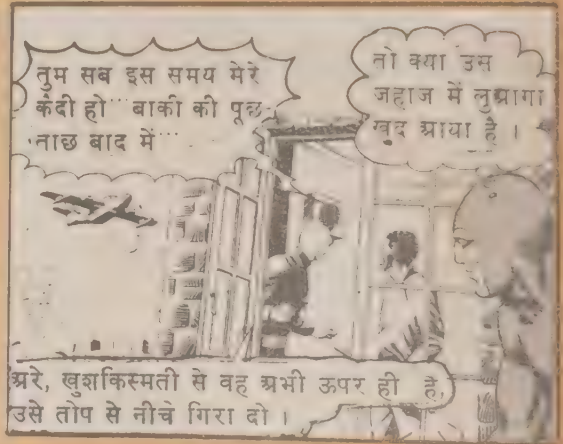 तुम सब इस समय मेरे
कैदी हो ... बाकी की पूछ-
ताछ बाद में ...
तो क्या उस
जहाज में लुआगा
खुद आया है ।
अरे, खुशकिस्मती से वह अभी ऊपर ही है,
उसे तोप से नीचे गिरा दो ।